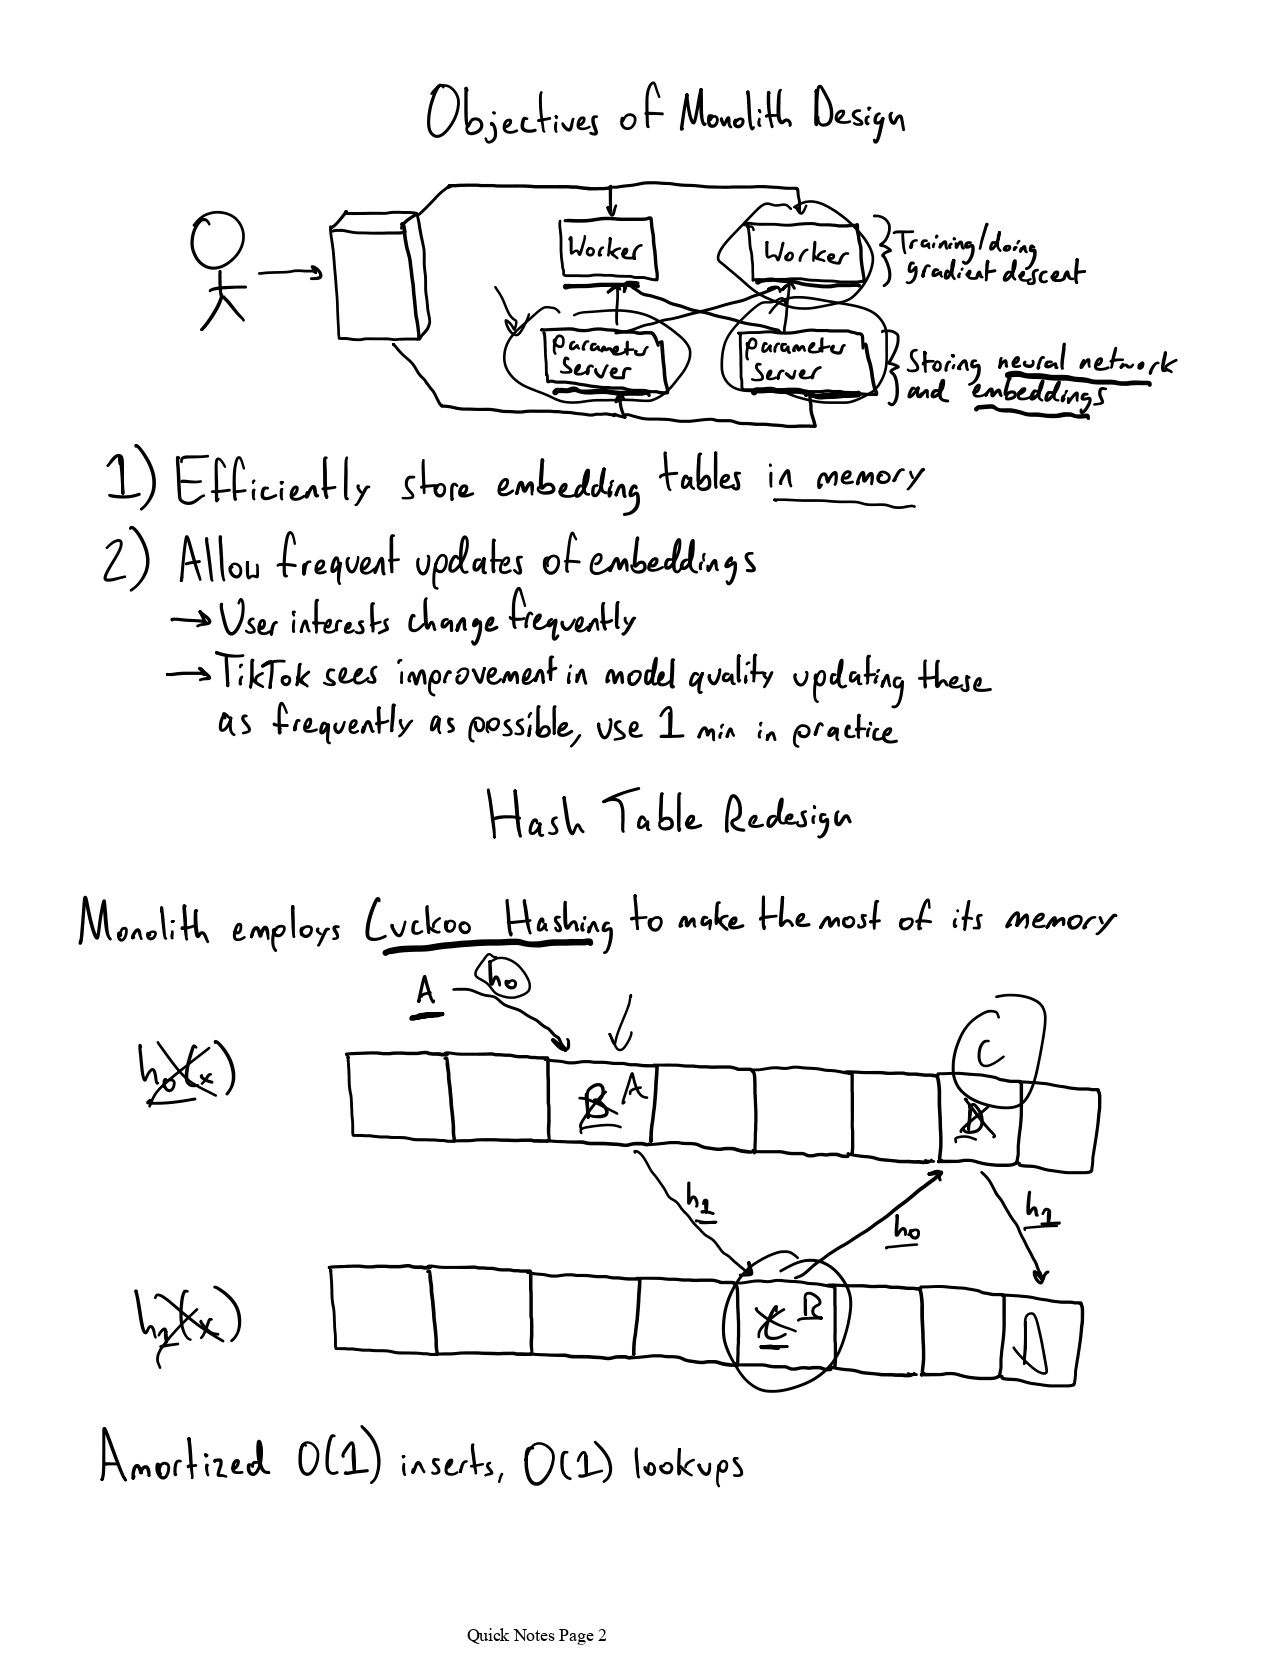 Objectives of Monolith Design
Worker
Worker
Training/doing
gradient descent
Parameter
Server
Parameter
Server
Storing neural network
and embeddings
1) Efficiently store embedding tables in memory
2) Allow frequent updates of embeddings
→ User interests change frequently
→ TikTok sees improvement in model quality updating these
as frequently as possible, use 1 min in practice
Hash Table Redesign
Monolith employs Cuckoo Hashing to make the most of its memory
A
h0
C
h0(x)
B A
D
h1
h0
h1
h1(x)
C B
D
Amortized O(1) inserts, O(1) lookups
Quick Notes Page 2